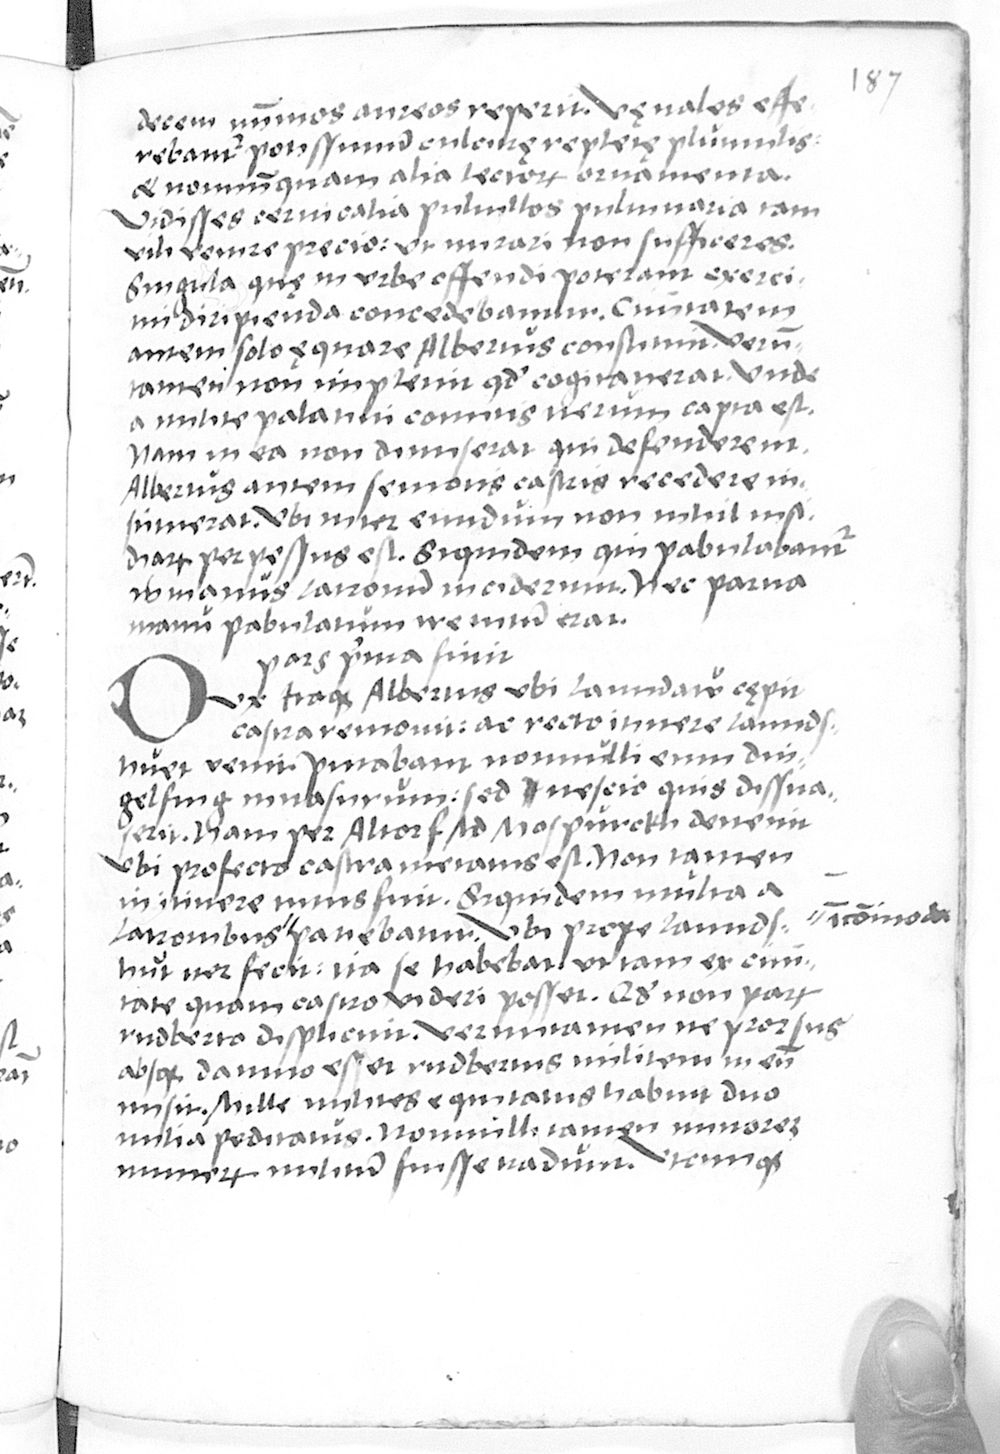 187
decem nūmos aureos reperit. Vęnales effe-
rebant᷑ potissimū culcitrę repletę plumulis:
& nonnūquam alia lectoꝝ ornamenta.
Vidisses ceruicalia puluillos puluinaria tam
vili venire precio: vt mirari non sufficeres.
Singula quę in vrbe offendi poterant exerci-
tui diripienda concedebantur. Ciuitatem
autem solo ęquare Albertus constituit. Verū-
tamen non impleuit qđ cogitauerat. Vnde
a milite palatini comitis iterum capta est.
Nam in ea non dimiserat qui defenderent.
Albertus autem semotis castris recedere in-
stituerat. Vbi inter eundum non nihil insi-
diaꝝ perpessus est. Siquidem qui pabulabant᷑
in manus latronū inciderunt. Nec parua
manu pabulatum ire tutū erat.
pars p̄ma finit
Dux itaqꝫ Albertus vbi lanndaw cępit
castra remouit: ac recto itinere lannds-
huet venit. Putabant nonnulli eum din-
gelfing inuasurum: sed nescio quis dissua-
serit. Nam per Altorf Ad Mospurckh deuenit
Vbi profecto castrametatus est. Non tamen
in itinere tutus fuit. Siquidem multa a
latronibus " patiebatur. Vbi prope lannds-
" īcōmoda
hut iter fecit: ita se habebat vt tam ex ciui-
tate quam castro videri posset. Qđ non paꝝ
rudberto displicuit. Veruntamen ne prorsus
absqꝫ damno esset rudbertus militem in eū
misit. Mille milites equitatus habuit duo
milia peditatus. Nonnulli tamen minorez
numeꝝ militū fuisse tradunt. Vtcunqꝫ